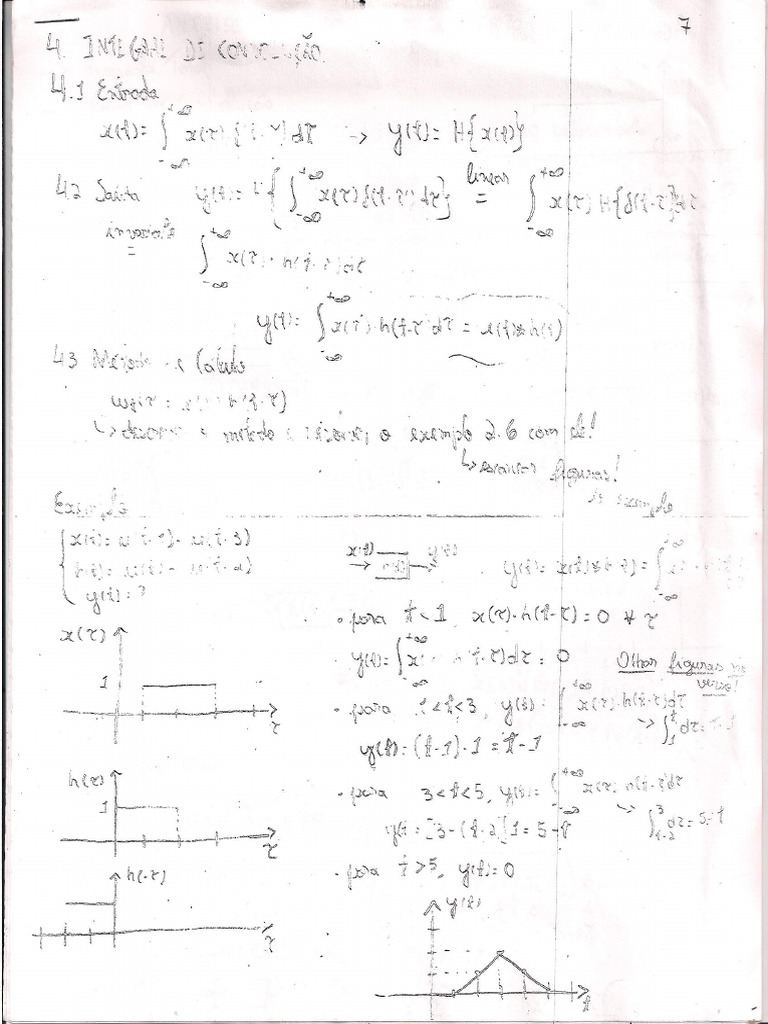 7
4. INTEGRAL DE CONVOLUÇÃO
4.1 Entrada
x(t) = ∫_{-∞}^{+∞} x(τ) δ(t-τ) dτ → y(t) = H{x(t)}
4.2 Saída y(t) = H{∫_{-∞}^{+∞} x(τ) δ(t-τ) dτ} =^{linear} ∫_{-∞}^{+∞} x(τ) H{δ(t-τ)} dτ
invariante = ∫_{-∞}^{+∞} x(τ) · h(t-τ) dτ
y(t) = ∫_{-∞}^{+∞} x(τ) · h(t-τ) dτ = x(t) * h(t)
4.3 Método de Cálculo
↳ método e o exemplo 2.6 com ele!
↳ figuras!
Exemplo
x(t) = u(t-1) - u(t-3)
h(t) = u(t) - u(t-2)
y(t) = ?
x(t) → h(t) → y(t)
y(t) = x(t) * h(t) = ∫_{-∞}^{+∞}
• para t < 1, x(τ) · h(t-τ) = 0 ∀ τ
y(t) = ∫_{-∞}^{+∞} x(τ) h(t-τ) dτ = 0
Olhar figuras no verso!
• para 1 < t < 3, y(t) = ∫_{-∞}^{+∞} x(τ) · h(t-τ) dτ
→ ∫_1^t dτ = t-1
y(t) = (t-1) · 1 = t-1
• para 3 < t < 5, y(t) = ∫_{-∞}^{+∞} x(τ) h(t-τ) dτ
→ ∫_{t-2}^3 dτ = 5-t
y(t) = [3-(t-2)]1 = 5-t
• para t > 5, y(t) = 0
x(τ)
1
τ
h(τ)
1
τ
h(-τ)
τ
y(t)
t